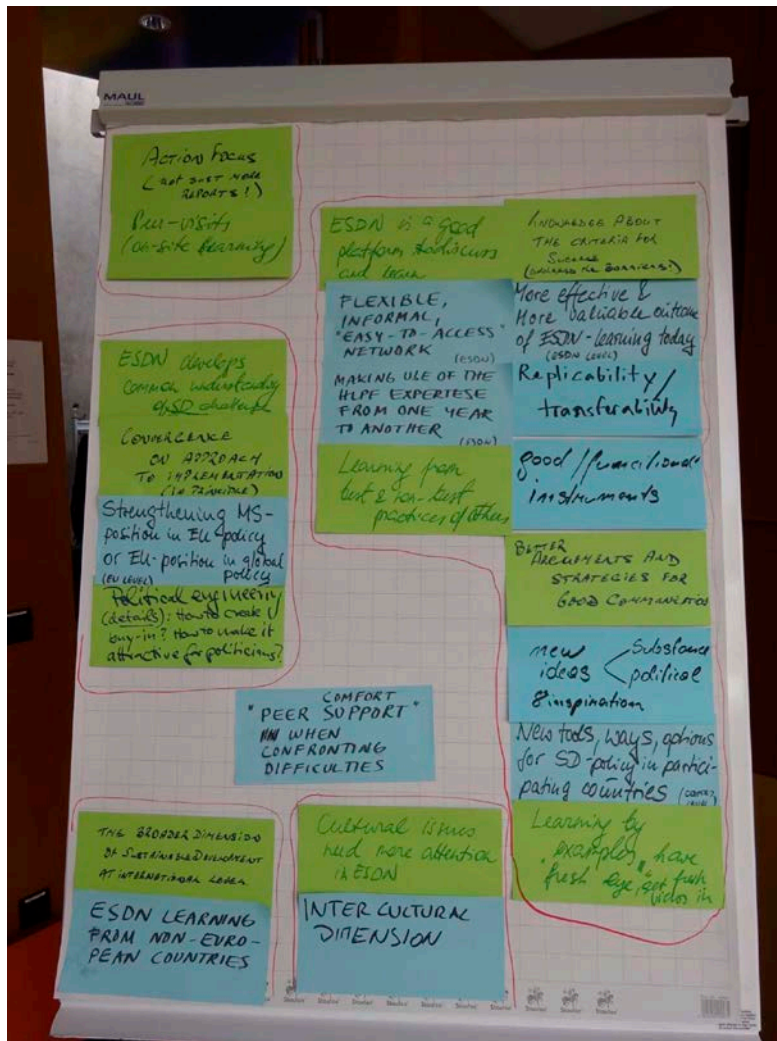 MAUL
ACTION FOCUS
(not JUST MORE
REPORTS!)
Peer-visits
(on-site learning)
ESDN develops
common understanding
of SD challenges
CONVERGENCE
ON APPROACH
TO IMPLEMENTATION
(IN PRINCIPLE)
Strengthening MS-
position in EU-policy
or EU-position in global
(EU LEVEL) policy
Political engineering
(details): How to create
buy-in? How to make it
attractive for politicians?
ESDN is a good
platform to discuss
and learn
FLEXIBLE,
INFORMAL,
"EASY-TO-ACCESS"
NETWORK
(ESDN)
MAKING USE OF THE
HLPF EXPERTESE
FROM ONE YEAR
TO ANOTHER
(ESDN)
Learning from
best & non-best
practices of others
KNOWLEDGE ABOUT
THE CRITERIA FOR
SUCCESS
BARRIERS!)
More effective &
More valuable outcome
of ESDN-learning today
(ESDN LEVEL)
Replicability/
transferability
good/functional
instruments
BETTER
ARGUMENTS AND
STRATEGIES FOR
GOOD COMMUNICATION
new
ideas
&inspiration
Substance
political
New tools, ways, options
for SD-policy in partici-
pating countries
Learning by
"examples, have
fresh eye, get fresh
in
COMFORT
"PEER SUPPORT"
WHEN
CONFRONTING
DIFFICULTIES
THE BROADER DIMENSION
OF SUSTAINABLE DEVELOPMENT
AT INTERNATIONAL LEVEL
ESDN LEARNING
FROM NON-EURO-
PEAN COUNTRIES
Cultural issues
need more attention
in ESDN
INTERCULTURAL
DIMENSION